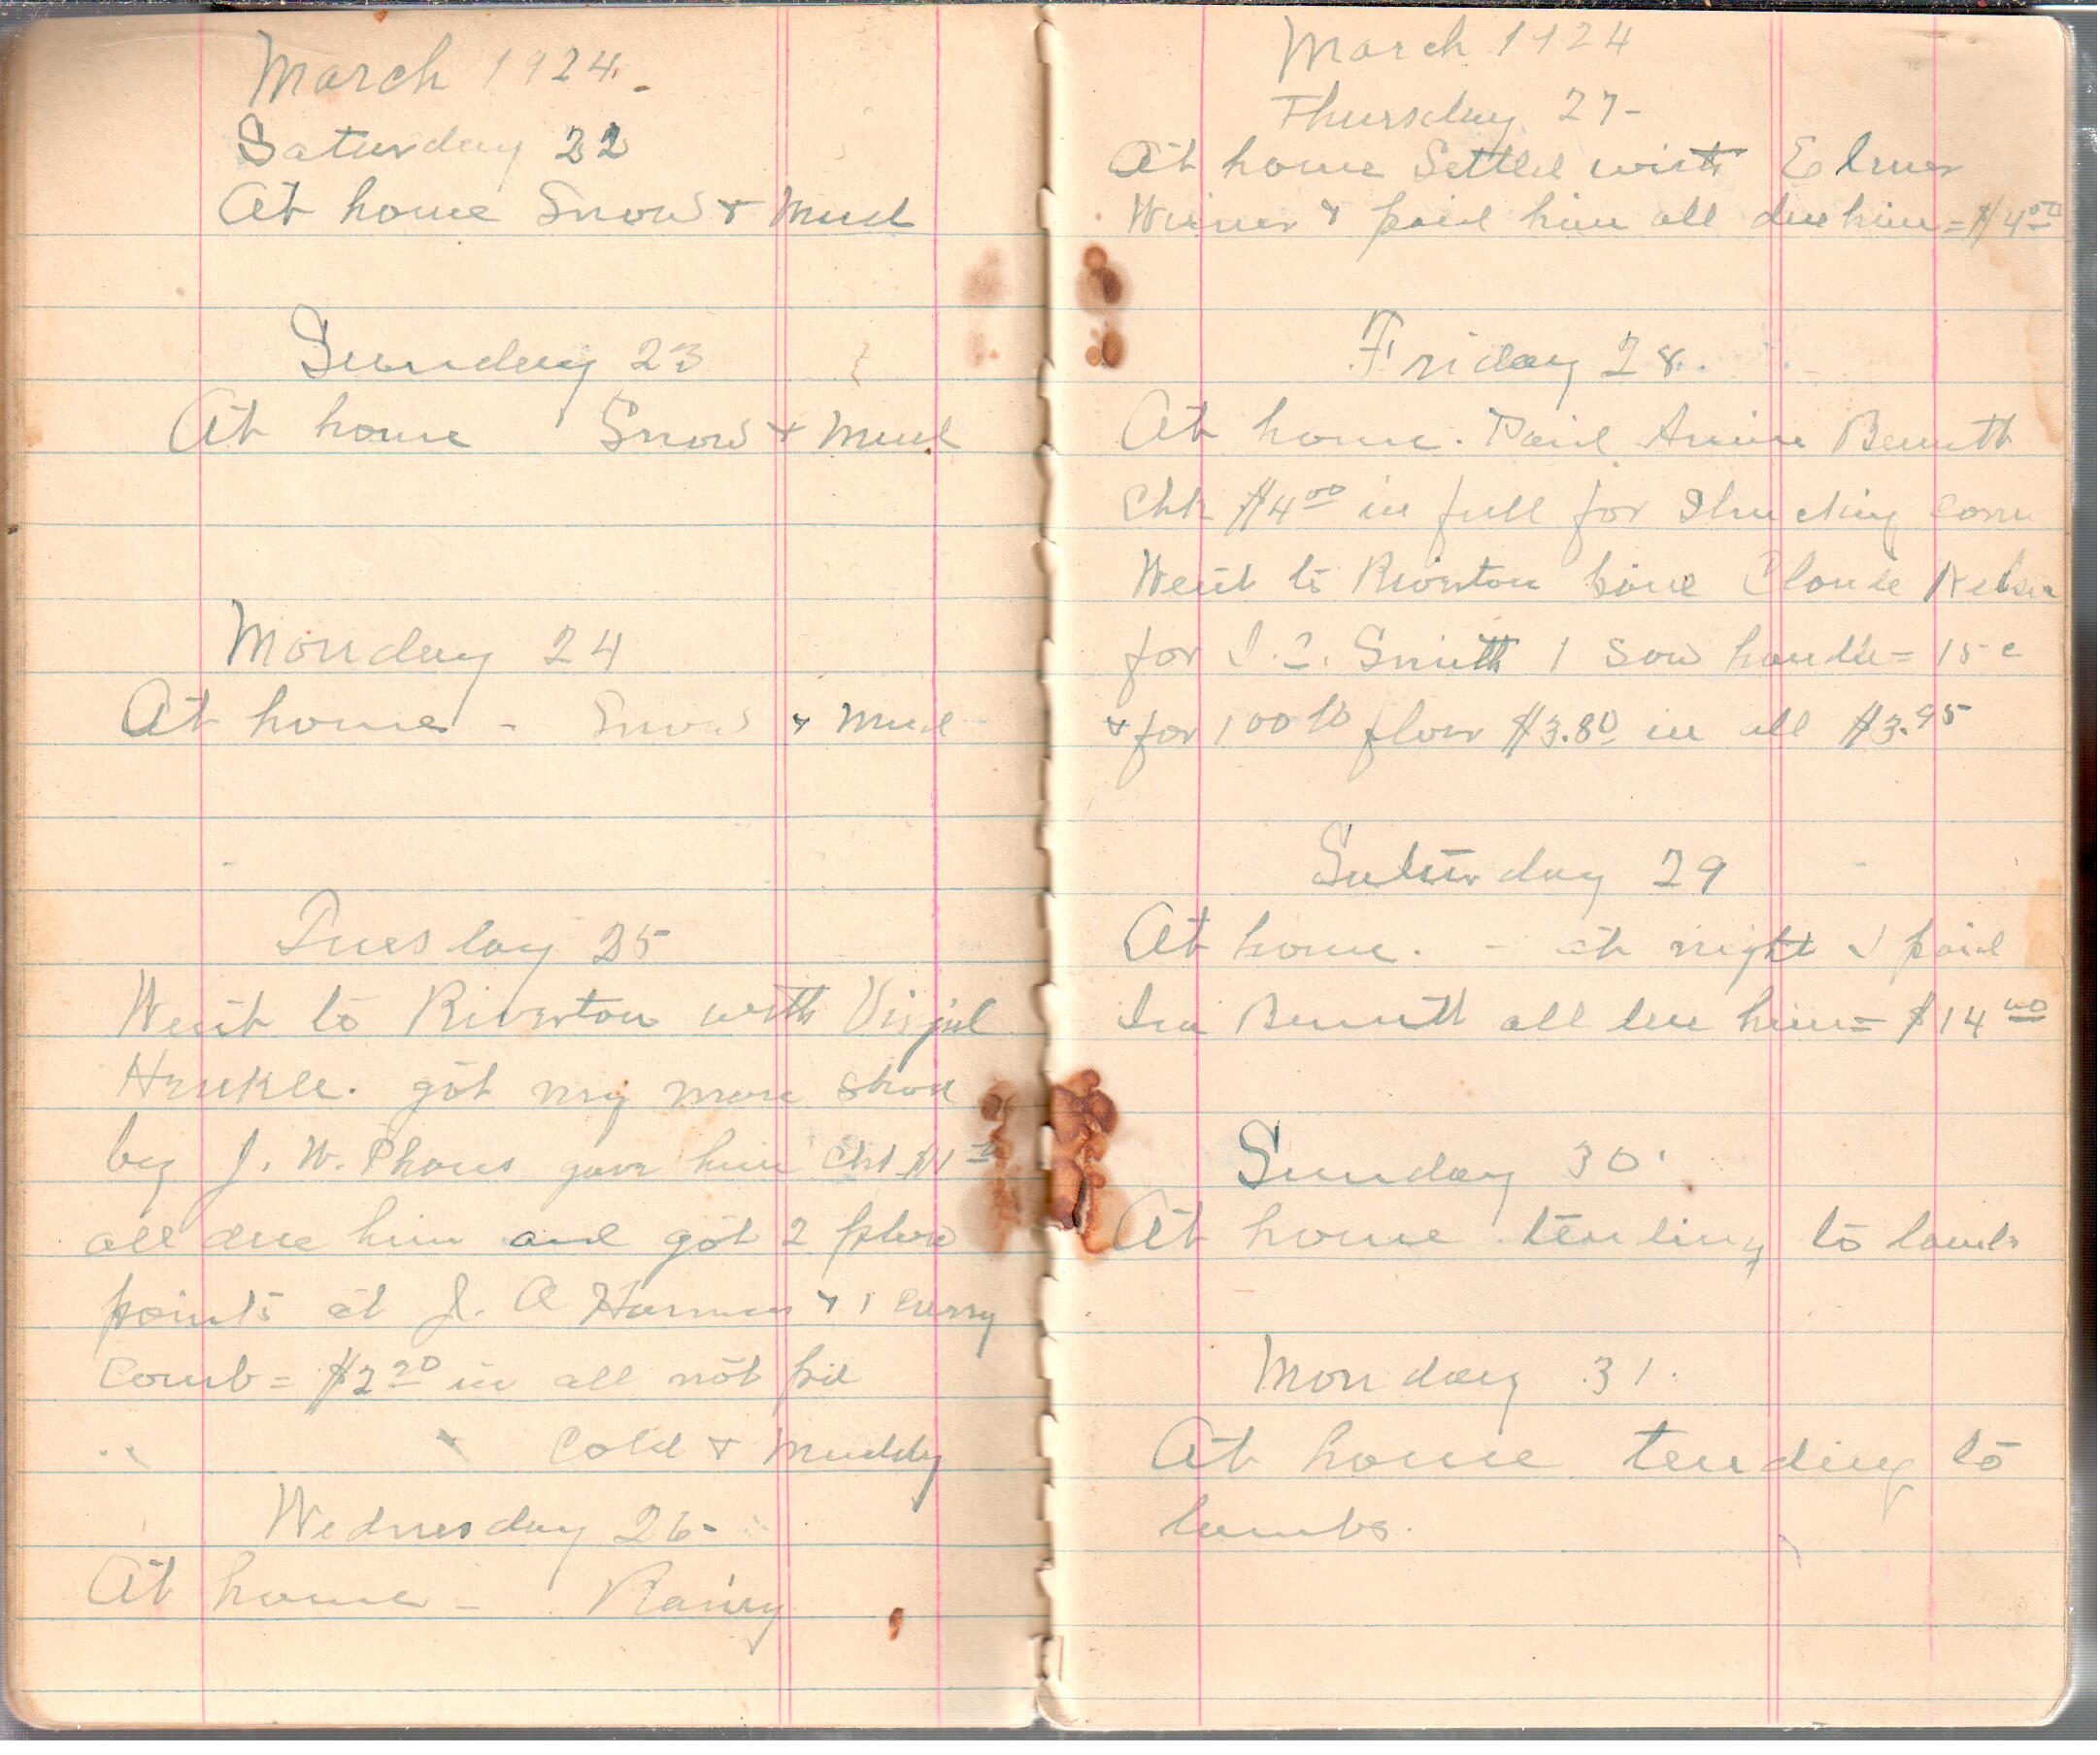 March 1924.
Saturday 22
At home Snow & Mud
Sunday 23
At home Snow & Mud
Monday 24
At home - Snow & Mud
Tuesday 25
Went to Riverton with Virjil
Hinkle. got my mare shod
by J. W. Phares gave him Chk $1
all due him and got 2 plow
points at J. A Harman & 1 Curry
Comb = $2 20 in all not pd
Cold & Muddy
Wednesday 26-
At home - Rainy
March 1924
Thursday 27-
At home Settled with Elmer
& paid him all due him = $4 00
Friday 28.
At home. Paid Bennett
Chk $4 00 in full for Shucking Corn
Went to Riverton paid Claude
for I. C. Smith 1 Saw handle = 15 c
& for 100 lb flour $3.80 in all $3.95
Saturday 29
At home. - at night I paid
Ira Bennett all due him = $14 00
Sunday 30.
At home tending to lambs
Monday 31.
At home tending to
lambs.